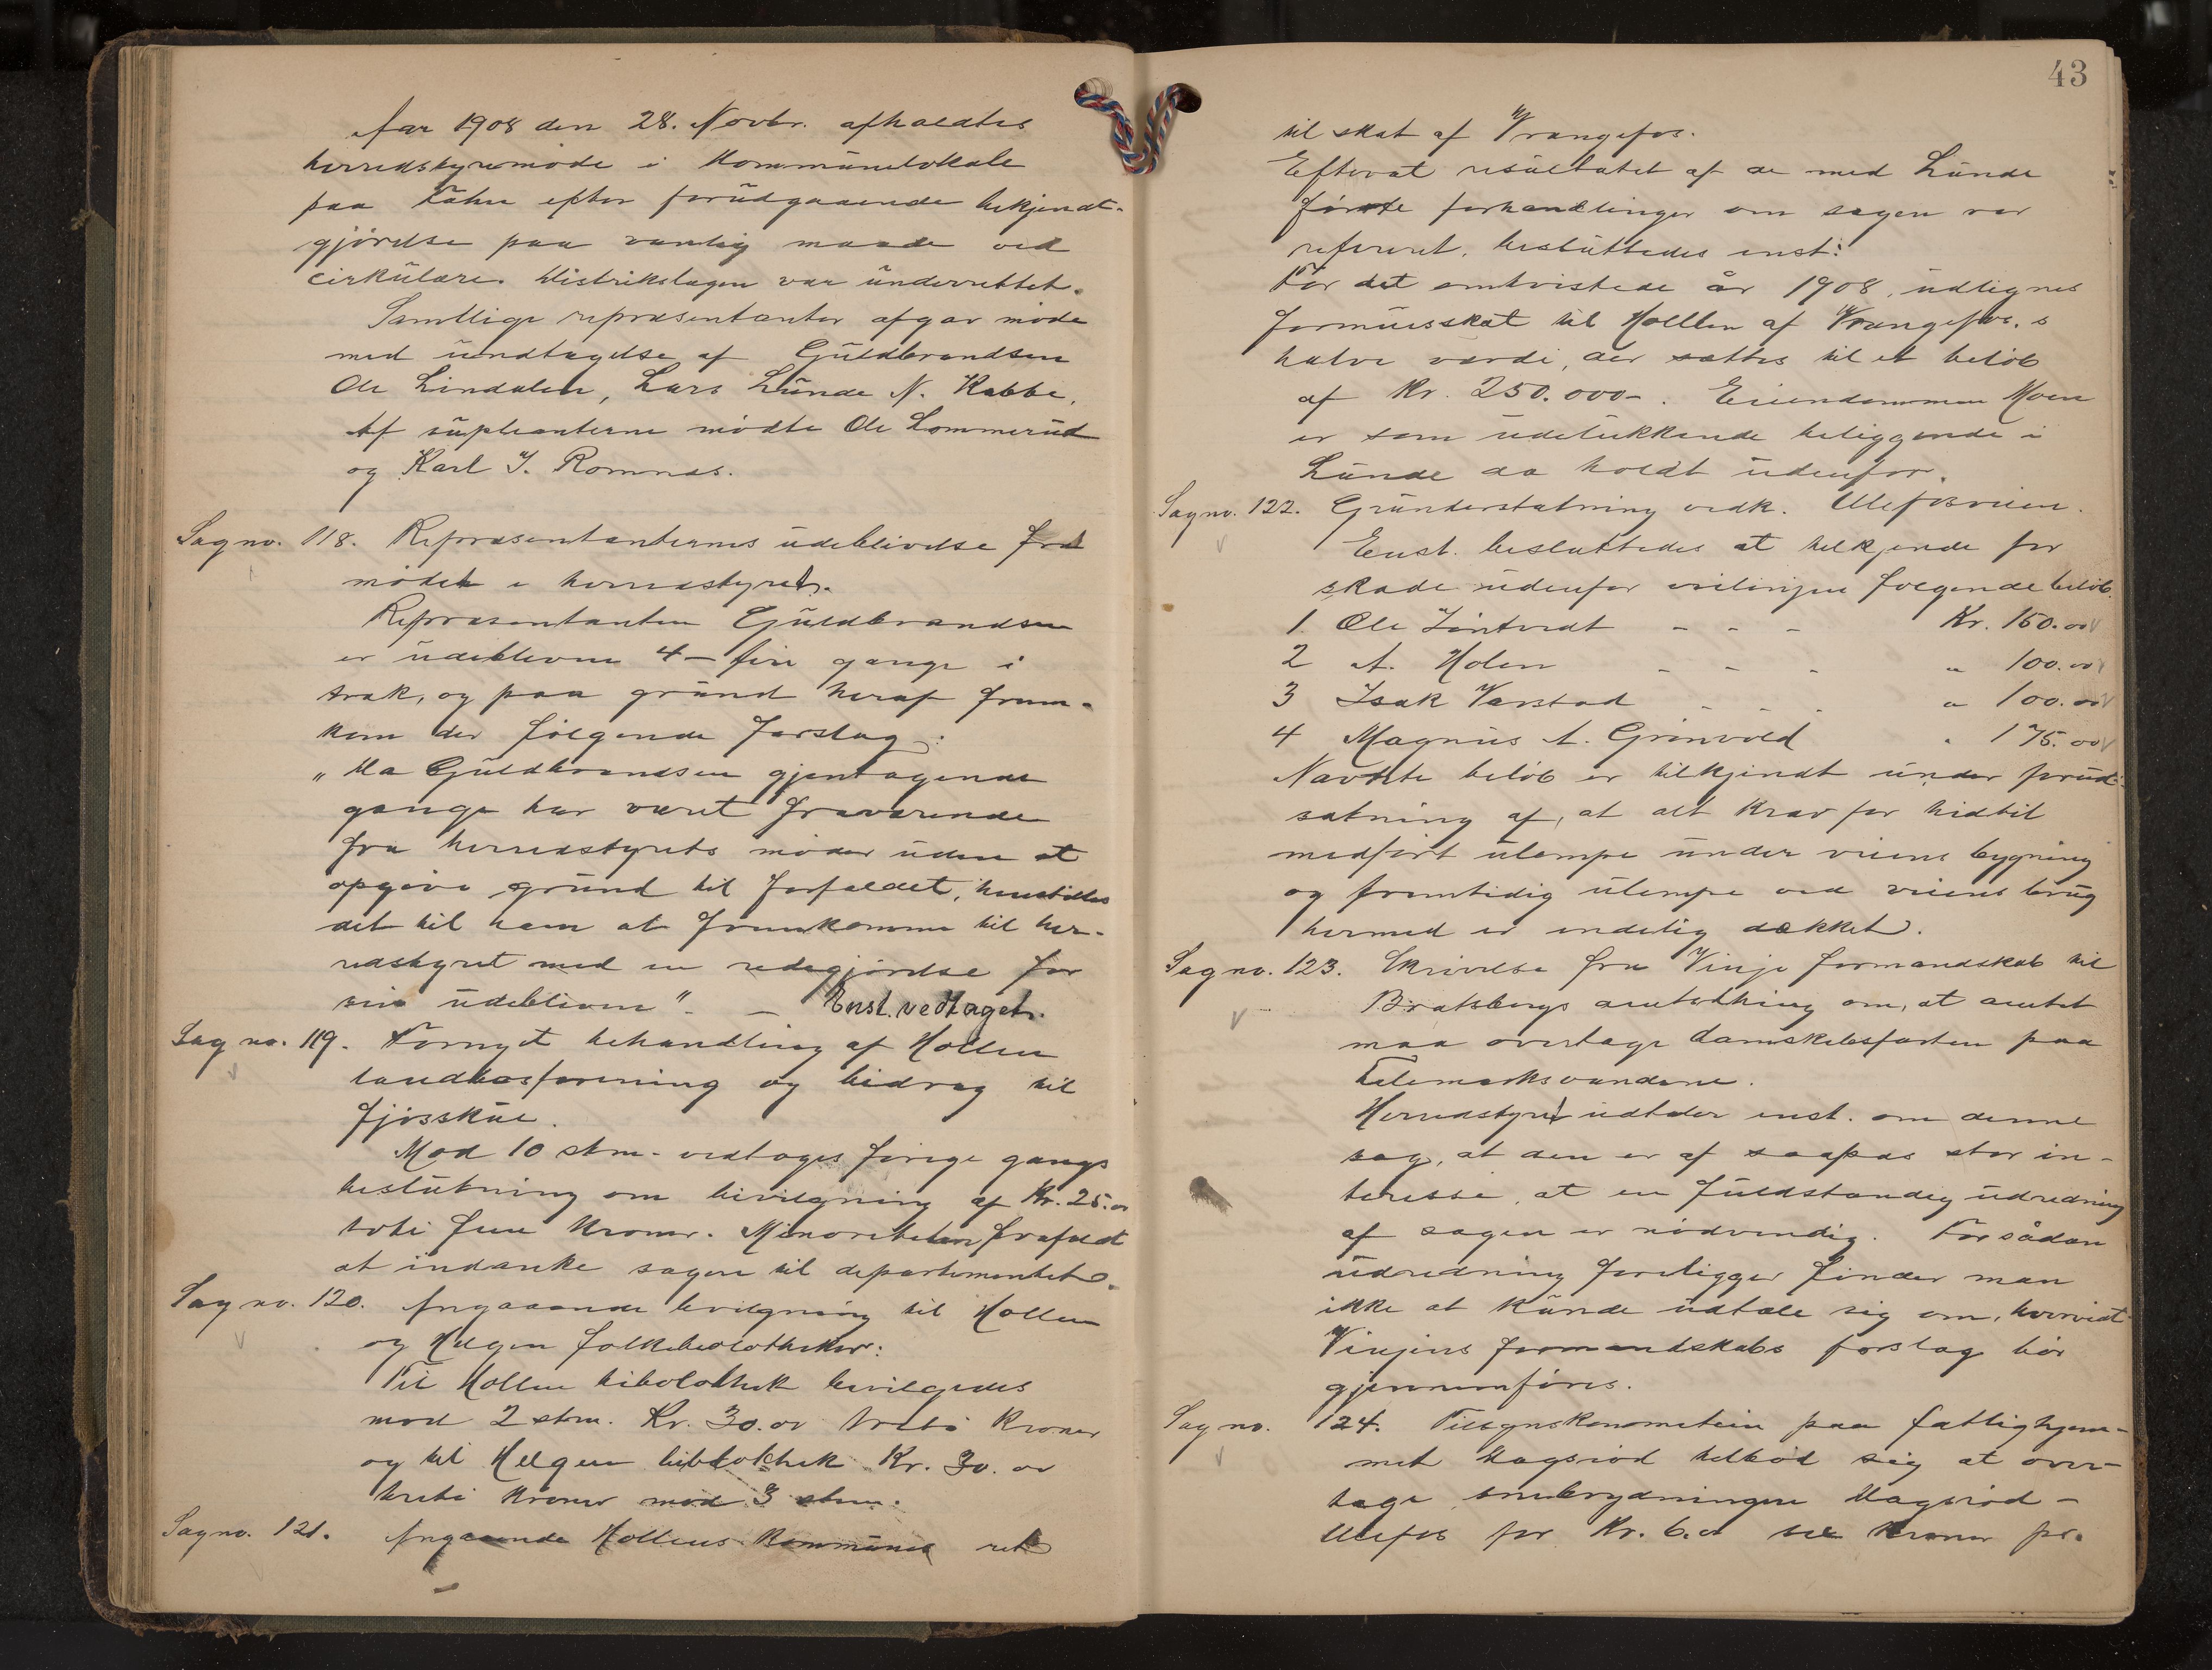 Aar 1908 den 28. Novbr. afholdtes
herredstyremöde i Kommunelokale
paa Tahn efter forudgaaende bekjendt-
gjörelse paa vanlig maade ved
cirkulære. Distrikslægen var underrettet.
Samtlige repræsentanter afgav möde
med undtagelse af Guldbrandsen
Ole Lindalen, Lars Lunde N. Kabbe.
Af supleanterne mödte Ole Lommerud
og Karl J. Romnæs.
Sag no. 118. Repræsentanternes udeblivelse fra
mödet i herredstyret.
Repræsentanten Guldbrandsen
er udebleven 4 – fire gange i
træk, og paa grund heraf frem-
kom der fölgende forslag:
"Da Guldbrandsen gjentagende
gange har været fraværende
fra herredstyrets möder uden at
opgive grund til forfaldet, henstilles
det til ham at fremkomme til her-
redstyret med en redegjörelse for
sin udebliven" – Enst. vedtaget.
Sag no. 119. Fornyet behandling af Hollen
landboforening og bidrag til
fjösskue.
Mod 10 stm. vedtoges forige gangs
beslutning om bevilgning af Kr. 25.00
tyve fem Kroner. Minoriteten frafaldt
at indanke sagen til departementet.
Sag no. 120. Angaaende bevilgning til Hollen
og Helgen folkebibliotheker:
Til Hollen bibliothek bevilgedes
mod 2 stm. Kr. 30.00 tredi Kroner
og til Helgen bibliothek Kr. 30.00
tredi Kroner mod 3 stm.
Sag no. 121. Angaaende Hollens Kommunes ret
43
til skat af Vrangefos.
Efterat resultatet af de med Lunde
förte forhandlinger om sagen var
refereret, besluttedes enst:
For det omtvistede år 1908, udlignes
formuesskat til Hollen af Vrangefos, s
halve værdi, der sættes til et belöb
af Kr. 250.000-. Eiendommen Moen
er som udelukkende beliggende i
Lunde da holdt udenfor.
Sag no. 122. Grunderstatning vedk. Ulefosveien.
Enst. besluttedes at tilkjende for
skade udenfor veilinjen fölgende belöb.
1. Ole Lintvedt - - - Kr. 150.00
2 A. Holen - - - " 100.00
3 Isak Værstad - - - " 100.00
4 Magnus A. Grönvold " 175.00
Nævnte belöb er tilkjendt under forud-
sætning af, at alt krav for hidtil
medfört ulempe under veiens bygning
og fremtidig ulempe ved veiens brug
hermed er endelig dækket.
Sag no. 123. Skrivelse fra Vinje formandskab til
Bratsbergs amtsthing om, at amtet
maa overtage damskibsfarten paa
Telemarksvandene.
Herredstyret udtaler enst. om denne
sag, at den er af saapas stor in-
teresse, at en fuldstændig udredning
af sagen er nödvendig. Før sådan
udredning foreligger finder man
ikke at kunde udtale sig om, hvorvidt
Vinjens formandskabs forslag bör
gjennemföres.
Sag no. 124. Tilsynskonometein paa fattighjem-
met Hagsröd tilböd sig at over-
tage snebrydningen Hagsröd –
Ulefos for Kr. 6.00 sex Kroner pr.